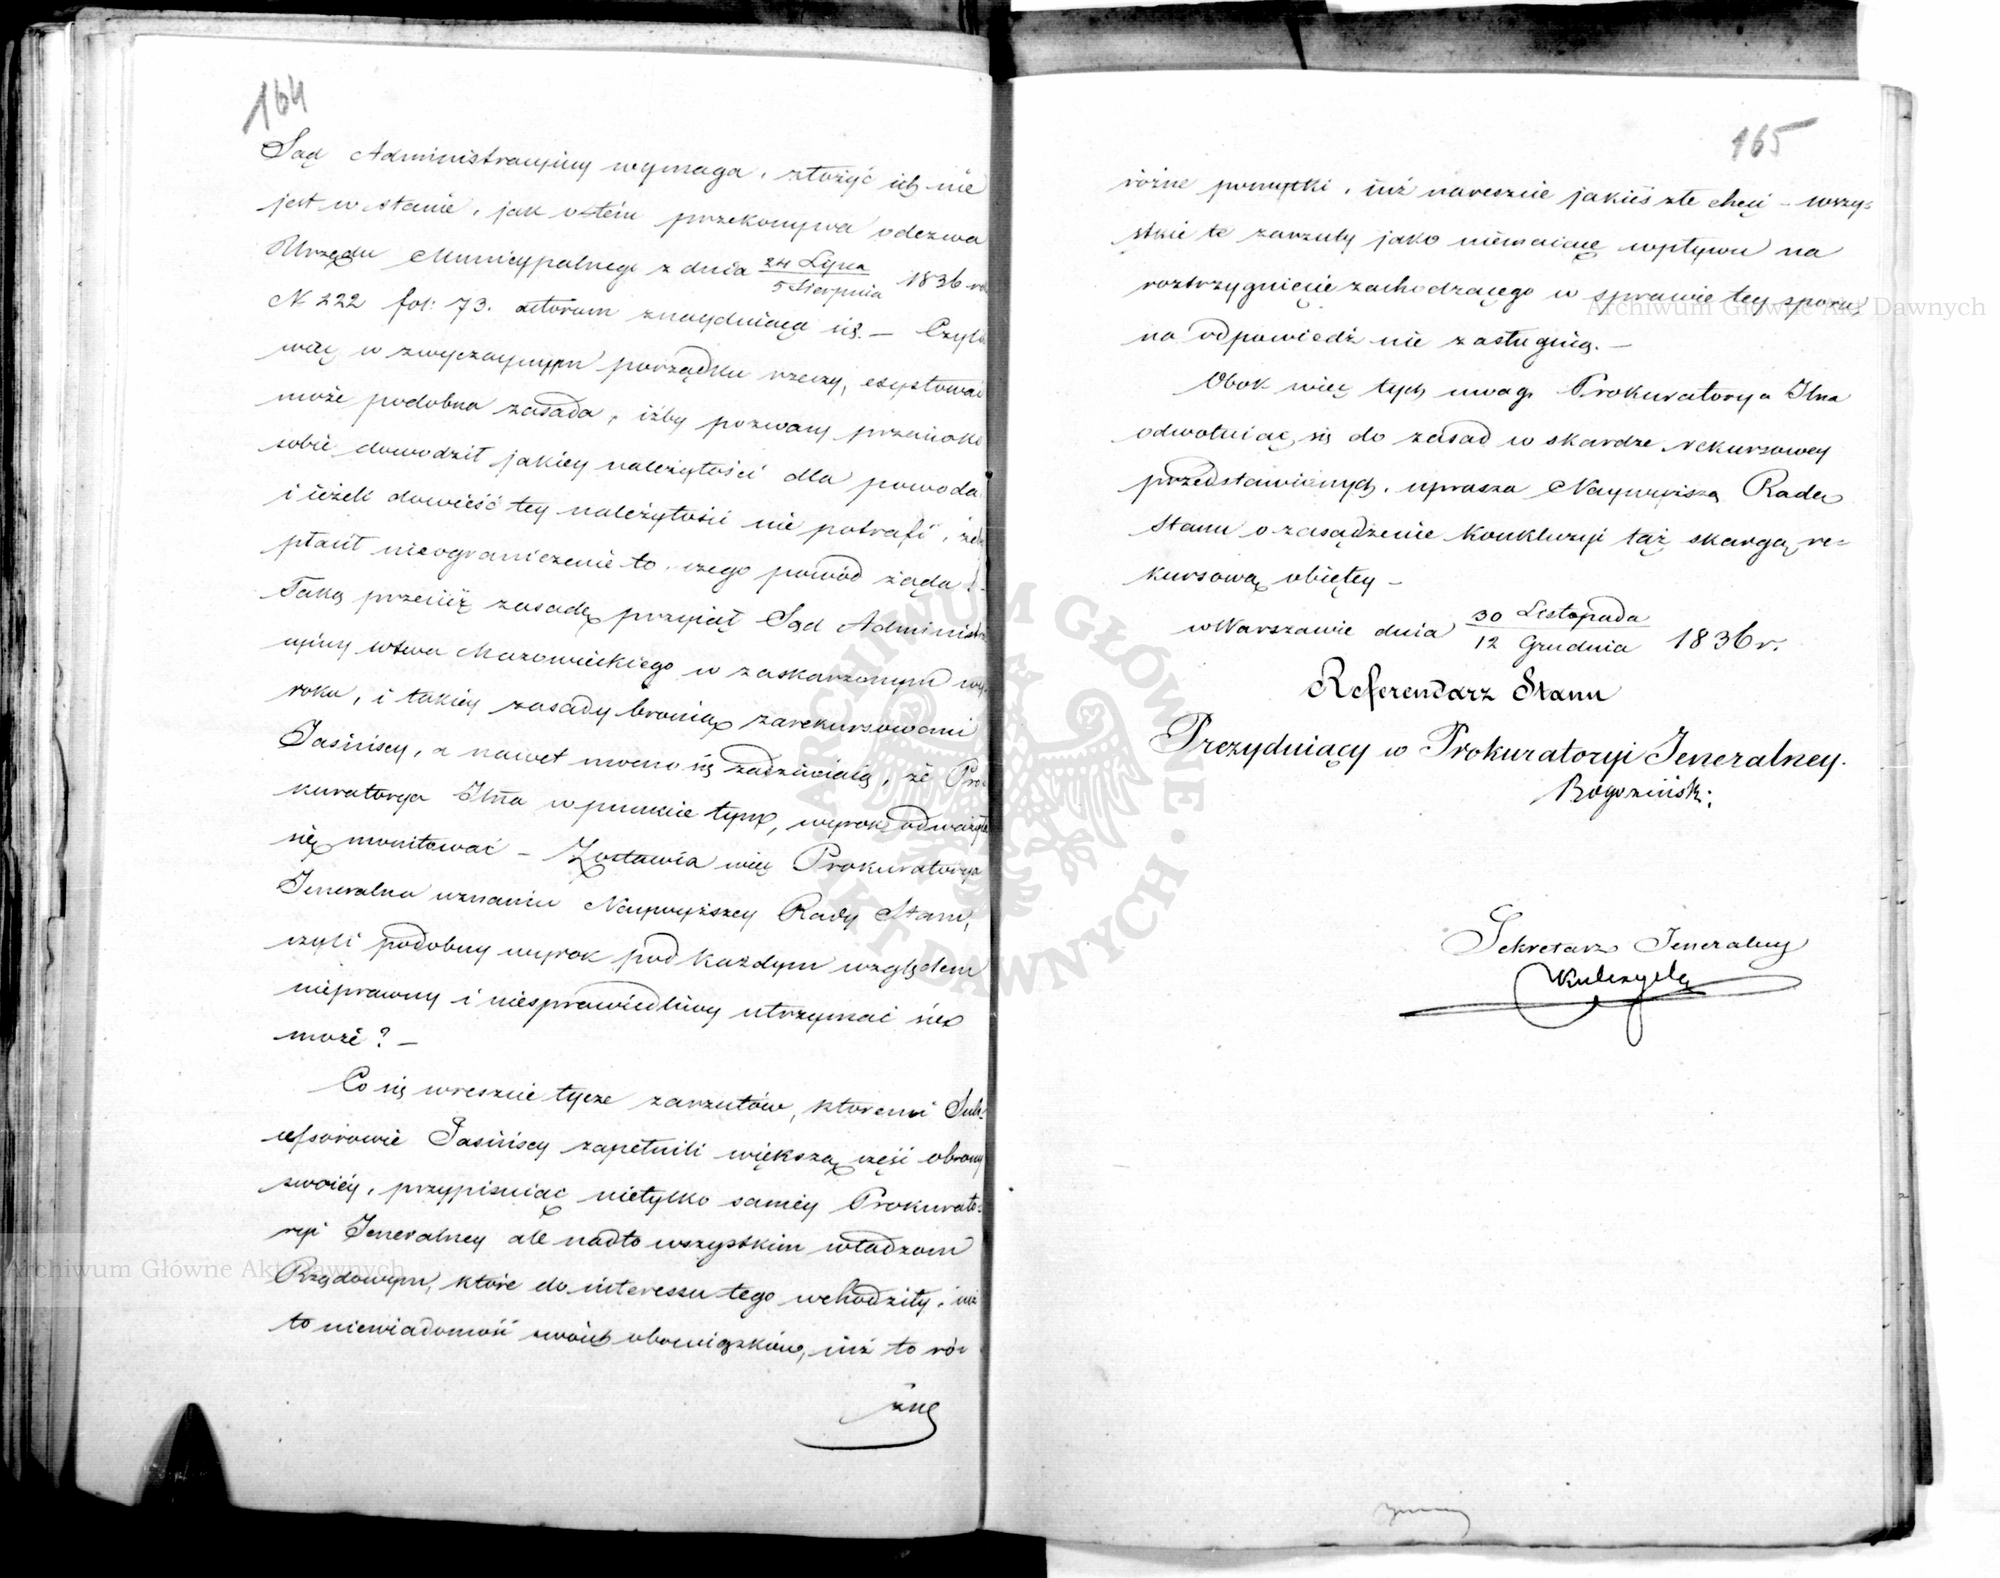 164
Sąd Administracyiny wymaga, złożyć ich nie
jest w stanie, jak o tém przekonywa odezwa
Urzędu Municypalnego z dnia 24 Lipca / 5 Sierpnia 1836 ro
N 222 fol: 73. aktorum znayduiąca się. — Czyli
więc w zwyczaynym porządku rzeczy, exystować
może podobna zasada, iżby pozwany przeciwko
sobie dowodził jakiey należytości dla powoda
i ieżeli dowieść tey należytości nie potrafi, żeby
płacił nieograniczenie to, czego powód żąda?
Taką przecież zasadę przyiął Sąd Administra
cyiny wdwa Mazowieckiego w zaskarżonym wy-
roku, i takiey zasady bronią zarekursowani
Jasińscy, a nawet mocno się zadziwiaią, że Pro
kuratorya Jlna w punkcie tym, wyrok odważyła
się monitować — Zostawia więc Prokuratorya
Jeneralna uznaniu Naywyższey Rady Stanu,
czyli podobny wyrok pod każdym względem
nieprawny i niesprawiedliwy utrzymać się
może? —
Co się wreszcie tycze zarzutów, któremi Suk-
cessorowie Jasińscy zapełnili większą część obrony
swoiéy, przypisuiąc nietylko saméy Prokurato-
ryi Jeneralney ale nadto wszystkim władzom
Rządowym, które do interessu tego wchodziły, iuż
to niewiadomość swoich obowiązków, iuż to ró-
żne
165
różne pomyłki, iuż nareszcie jakieiś złe chęci — wszy-
stkie te zarzuty jako niemaiące wpływu na
roztrzygnięcie zachodzącego w sprawie tey sporu,
na odpowiedź nie zasługuią. —
Obok więc tych uwag Prokuratorya Jlna
odwołuiąc się do zasad w skardze rekursowey
przedstawionych, uprasza Naywyższą Radę
Stanu o zasądzenie Konkluzyi tąż skargą re-
kursową obiętey —
w Warszawie dnia 30 Listopada / 12 Grudnia 1836 r.
Referendarz Stanu
Prezyduiący w Prokuratoryi Jeneralney.
Rogoziński:
Sekretarz Jeneralny
Archiwum Główne Akt Dawnych
Archiwum Główne Akt Dawnych
ARCHIWUM GŁÓWNE AKT DAWNYCH